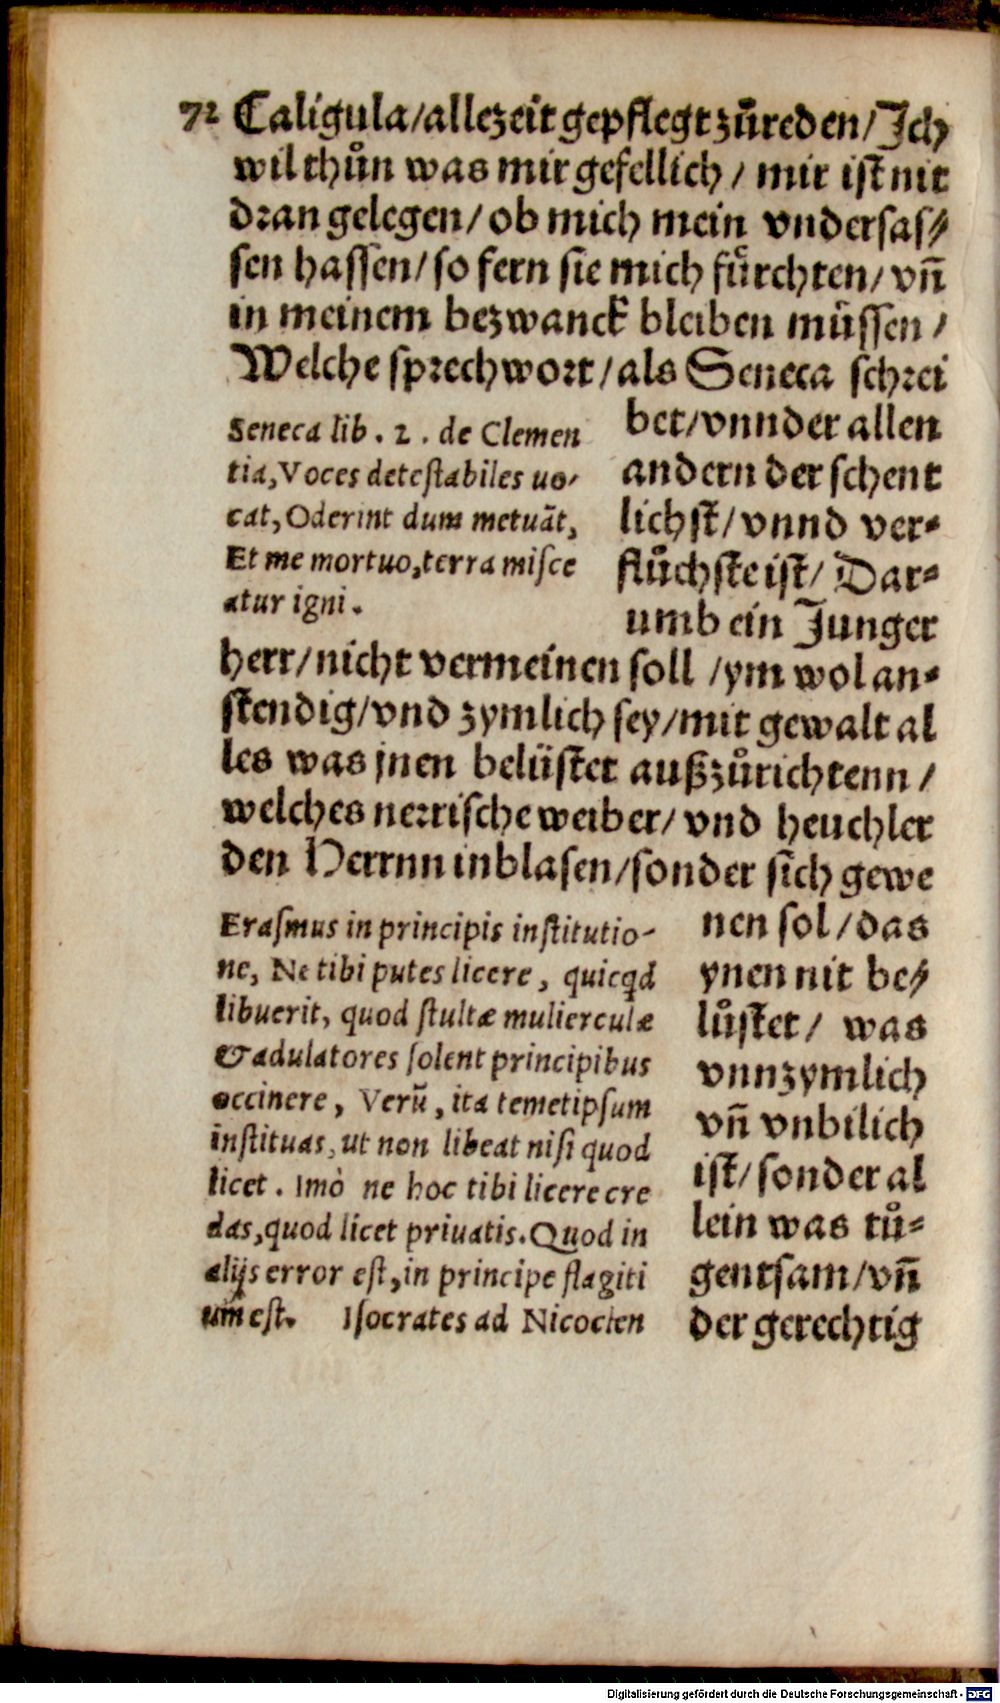 72 Caligula/allezeit gepflegt zůreden/Ich
wil thůn was mir gefellich / mir ist nit
dran gelegen/ ob mich mein vndersas⸗
sen hassen/ so fern sie mich fürchten/ vn̄
in meinem bezwanck bleiben müssen /
Welche sprechwort/als Seneca schrei
bet/vnnder allen
andern der schent
lichst/ vnnd ver⸗
flůchste ist/ Dar⸗
umb ein Junger
Seneca lib. 2. de Clemen
tia, Voces detestabiles uo-
cat, Oderint dum metuãt,
Et me mortuo, terra misce
atur igni.
herr/nicht vermeinen soll /ym wol an⸗
stendig/vnd zymlich sey/mit gewalt al
les was jnen belüstet außzůrichtenn /
welches nerrische weiber/ vnd heuchler
den Herrnn inblasen/sonder sich gewe
nen sol/das
ynen nit be⸗
lůstet/ was
vnnzymlich
vn̄ vnbilich
ist/ sonder al
lein was tů⸗
gentsam/vn̄
der gerechtig
Erasmus in principis institutio-
ne, Ne tibi putes licere, quicq̃d
libuerit, quod stultæ mulierculæ
& adulatores solent principibus
occinere, Verũ, ita temetipsum
instituas, ut non libeat nisi quod
licet. Imò ne hoc tibi licere cre
das, quod licet priuatis. Quod in
alijs error est, in principe flagiti
um est. Isocrates ad Nicoclen
Digitalisierung gefördert durch die Deutsche Forschungsgemeinschaft - DFG